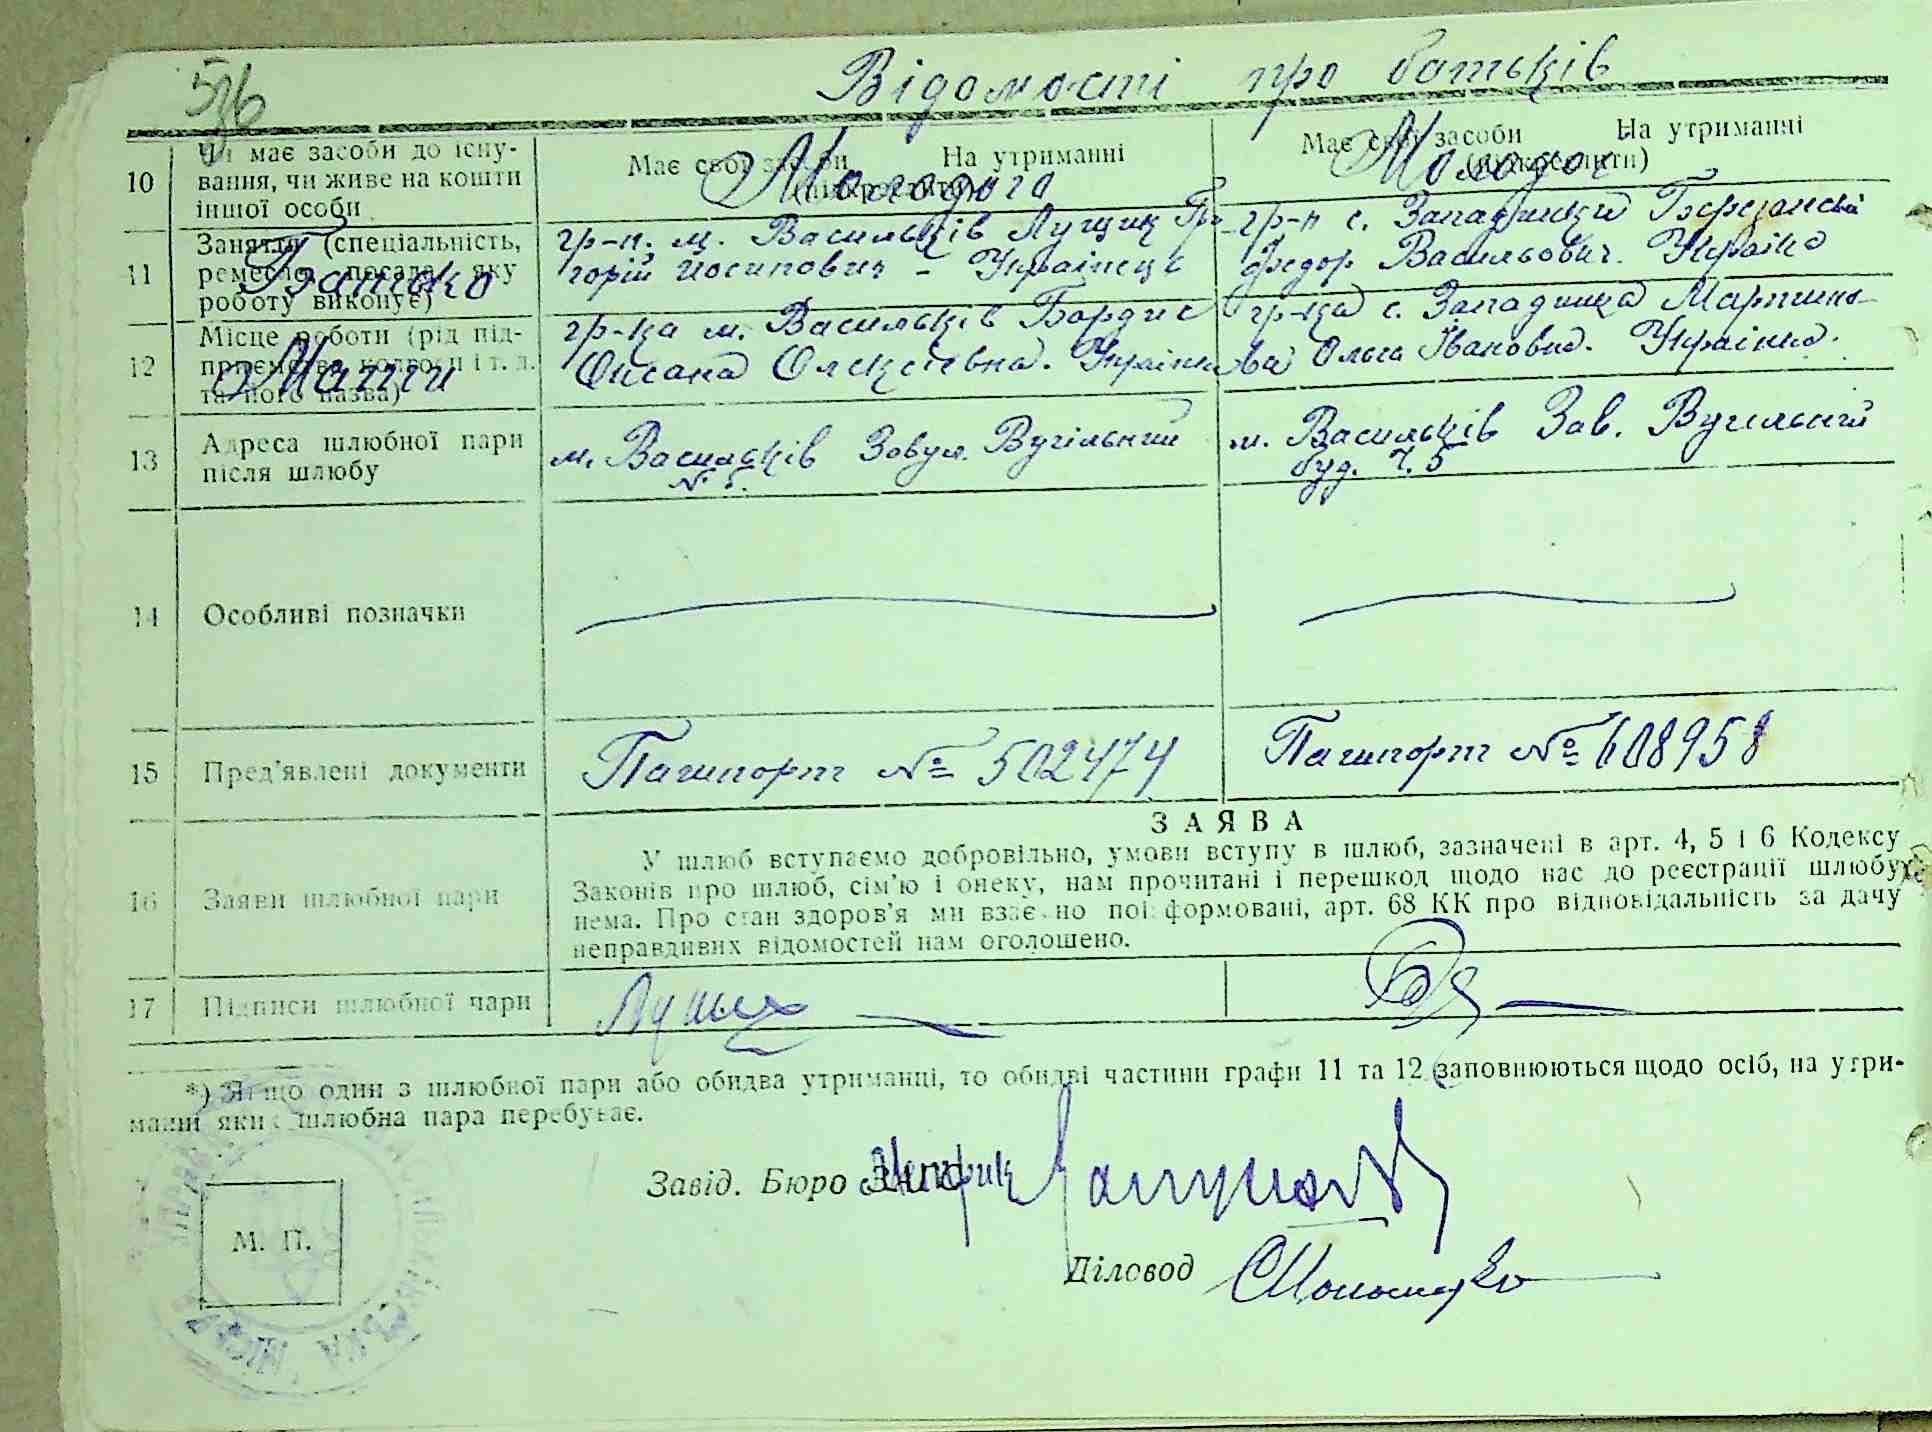 56
Відомості про батьків
10
Чи має засоби до існу-
вання, чи живе на кошти
іншої особи
Має свої засоби На утриманні
(підкреслити)
Молодого
Має свої засоби На утриманні
(підкреслити)
Молодої
11
Заняття (спеціальність,
ремесло, посада, яку
роботу виконує)
Батько
гр-н. м. Васильків Лущик Гри-
горій Йосипович - Українець
гр-н с. Западинки Березанський
Федор Васильович. Українο
12
Місце роботи (рід під-
приємства, колгосп і т. д.
та його назва)
Мати
гр-ка м. Васильків Бордис
Оксана Олексіевна. Українка
гр-ка с. Западинка Мартине-
ва Ольга Івановна. Українка.
13
Адреса шлюбної пари
після шлюбу
м. Васильків Завул. Вугільний
№ 5.
м. Васильків Зав. Вугільний
буд. Ч. 5
14
Особливі позначки
15
Пред'явлені документи
Пашпорт № 502474
Пашпорт № 608958
16
Заяви шлюбної пари
ЗАЯВА
У шлюб вступаємо добровільно, умови вступу в шлюб, зазначені в арт. 4, 5 і 6 Кодексу
Законів про шлюб, сім'ю і опеку, нам прочитані і перешкод щодо нас до реєстрації шлюбу
нема. Про стан здоров'я ми взаємно поінформовані, арт. 68 КК про відповідальність за дачу
неправдивих відомостей нам оголошено.
17
Підписи шлюбної пари
*) Якщо один з шлюбної пари або обидва утриманці, то обидві частини графи 11 та 12 заповнюються щодо осіб, на утри-
манні яких шлюбна пара перебуває.
Завід. Бюро ЗАГС
М. П.
Діловод